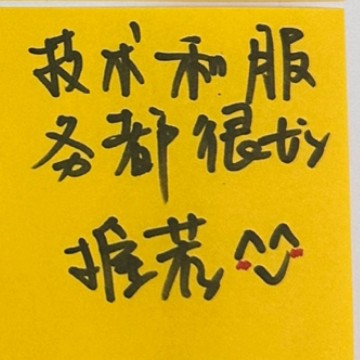 技术和服
务都很
推荐